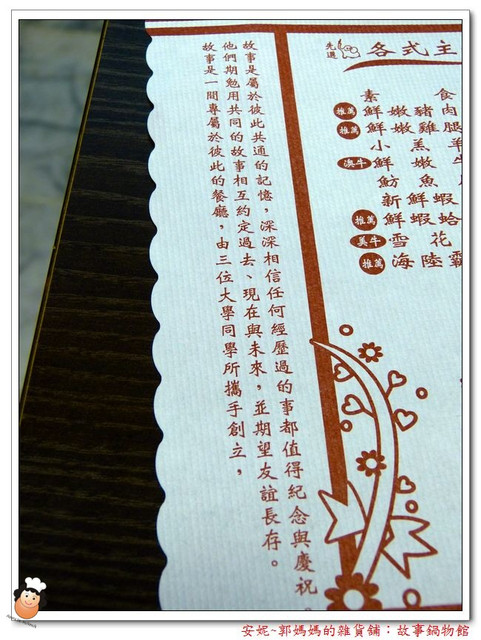 故事是屬於彼此共通的記憶，深深相信任何經歷過的事都值得紀念與慶祝。
他們期勉用共同的故事相互約定過去、現在與未來，並期望友誼長存。
故事是一間專屬於彼此的餐廳，由三位大學同學所攜手創立，
先選
各式主
素食
推薦 鮮嫩豬肉
推薦 鮮嫩雞腿
小羔羊
澳牛 鮮嫩牛
魴魚
新鮮蝦
推薦 鮮蝦蛤
美牛 雪花
推薦 海陸霸
安妮~郭媽媽的雜貨舖：故事鍋物館